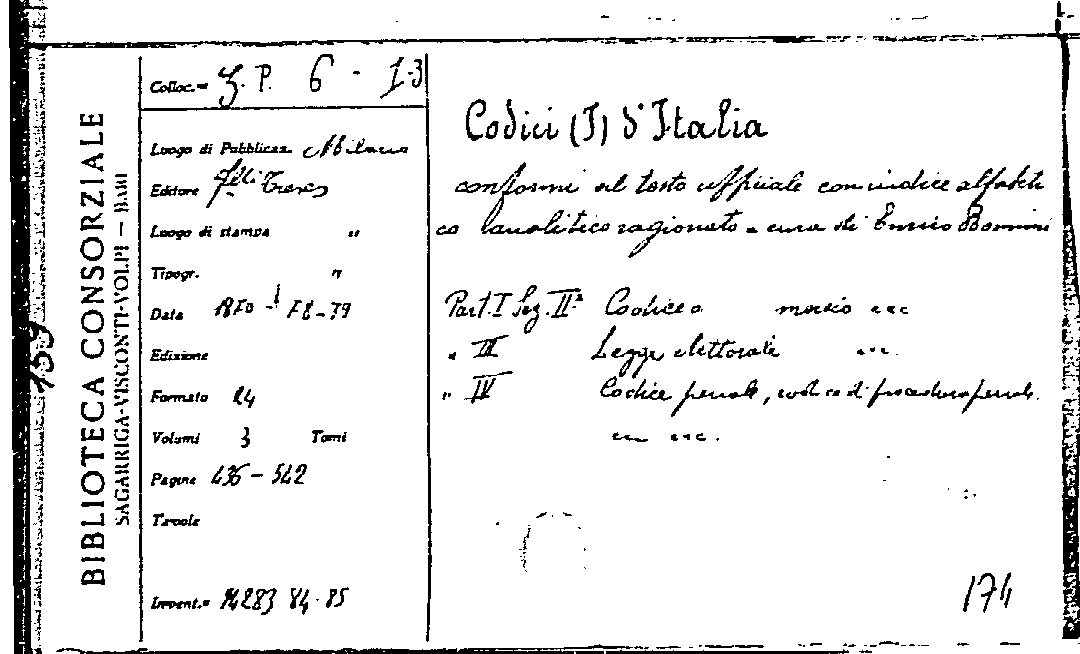 BIBLIOTECA CONSORZIALE
SAGARRIGA-VISCONTI-VOLPI — BARI
159
Colloc.ne P. 6 - I-3
Luogo di Pubblicaz. Milano
Editore F.lli Treves
Luogo di stampa "
Tipogr. "
Data 1870 - 78-79
Edizione
Formato 24
Volumi 3 Tomi
Pagine 436 - 542
Tavole
Invent.= 14283 84-85
Codici (I) d'Italia
conformi al testo ufficiale con indice alfabeti
co analitico ragionato a cura di Enrico
Part. I Sez. II.ª Codice ecc
" III Legge elettorale ecc.
" IV Codice penale, codice di procedura penale
ecc.
174